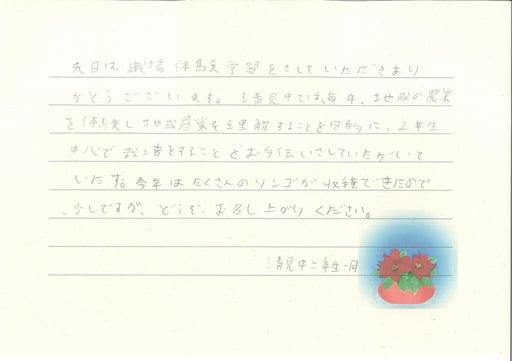 先日は、職場体験学習をさせていただきあり
がとうございます。清見中では、毎年、地域の農業
を体験し地域産業を理解することを目的に、2年生
中心で することとお手伝いさせていただいて
います。今年はたくさんのリンゴが収穫できたので
、少しですが、どうぞ、お召し上がりください。
清見中二年生一同